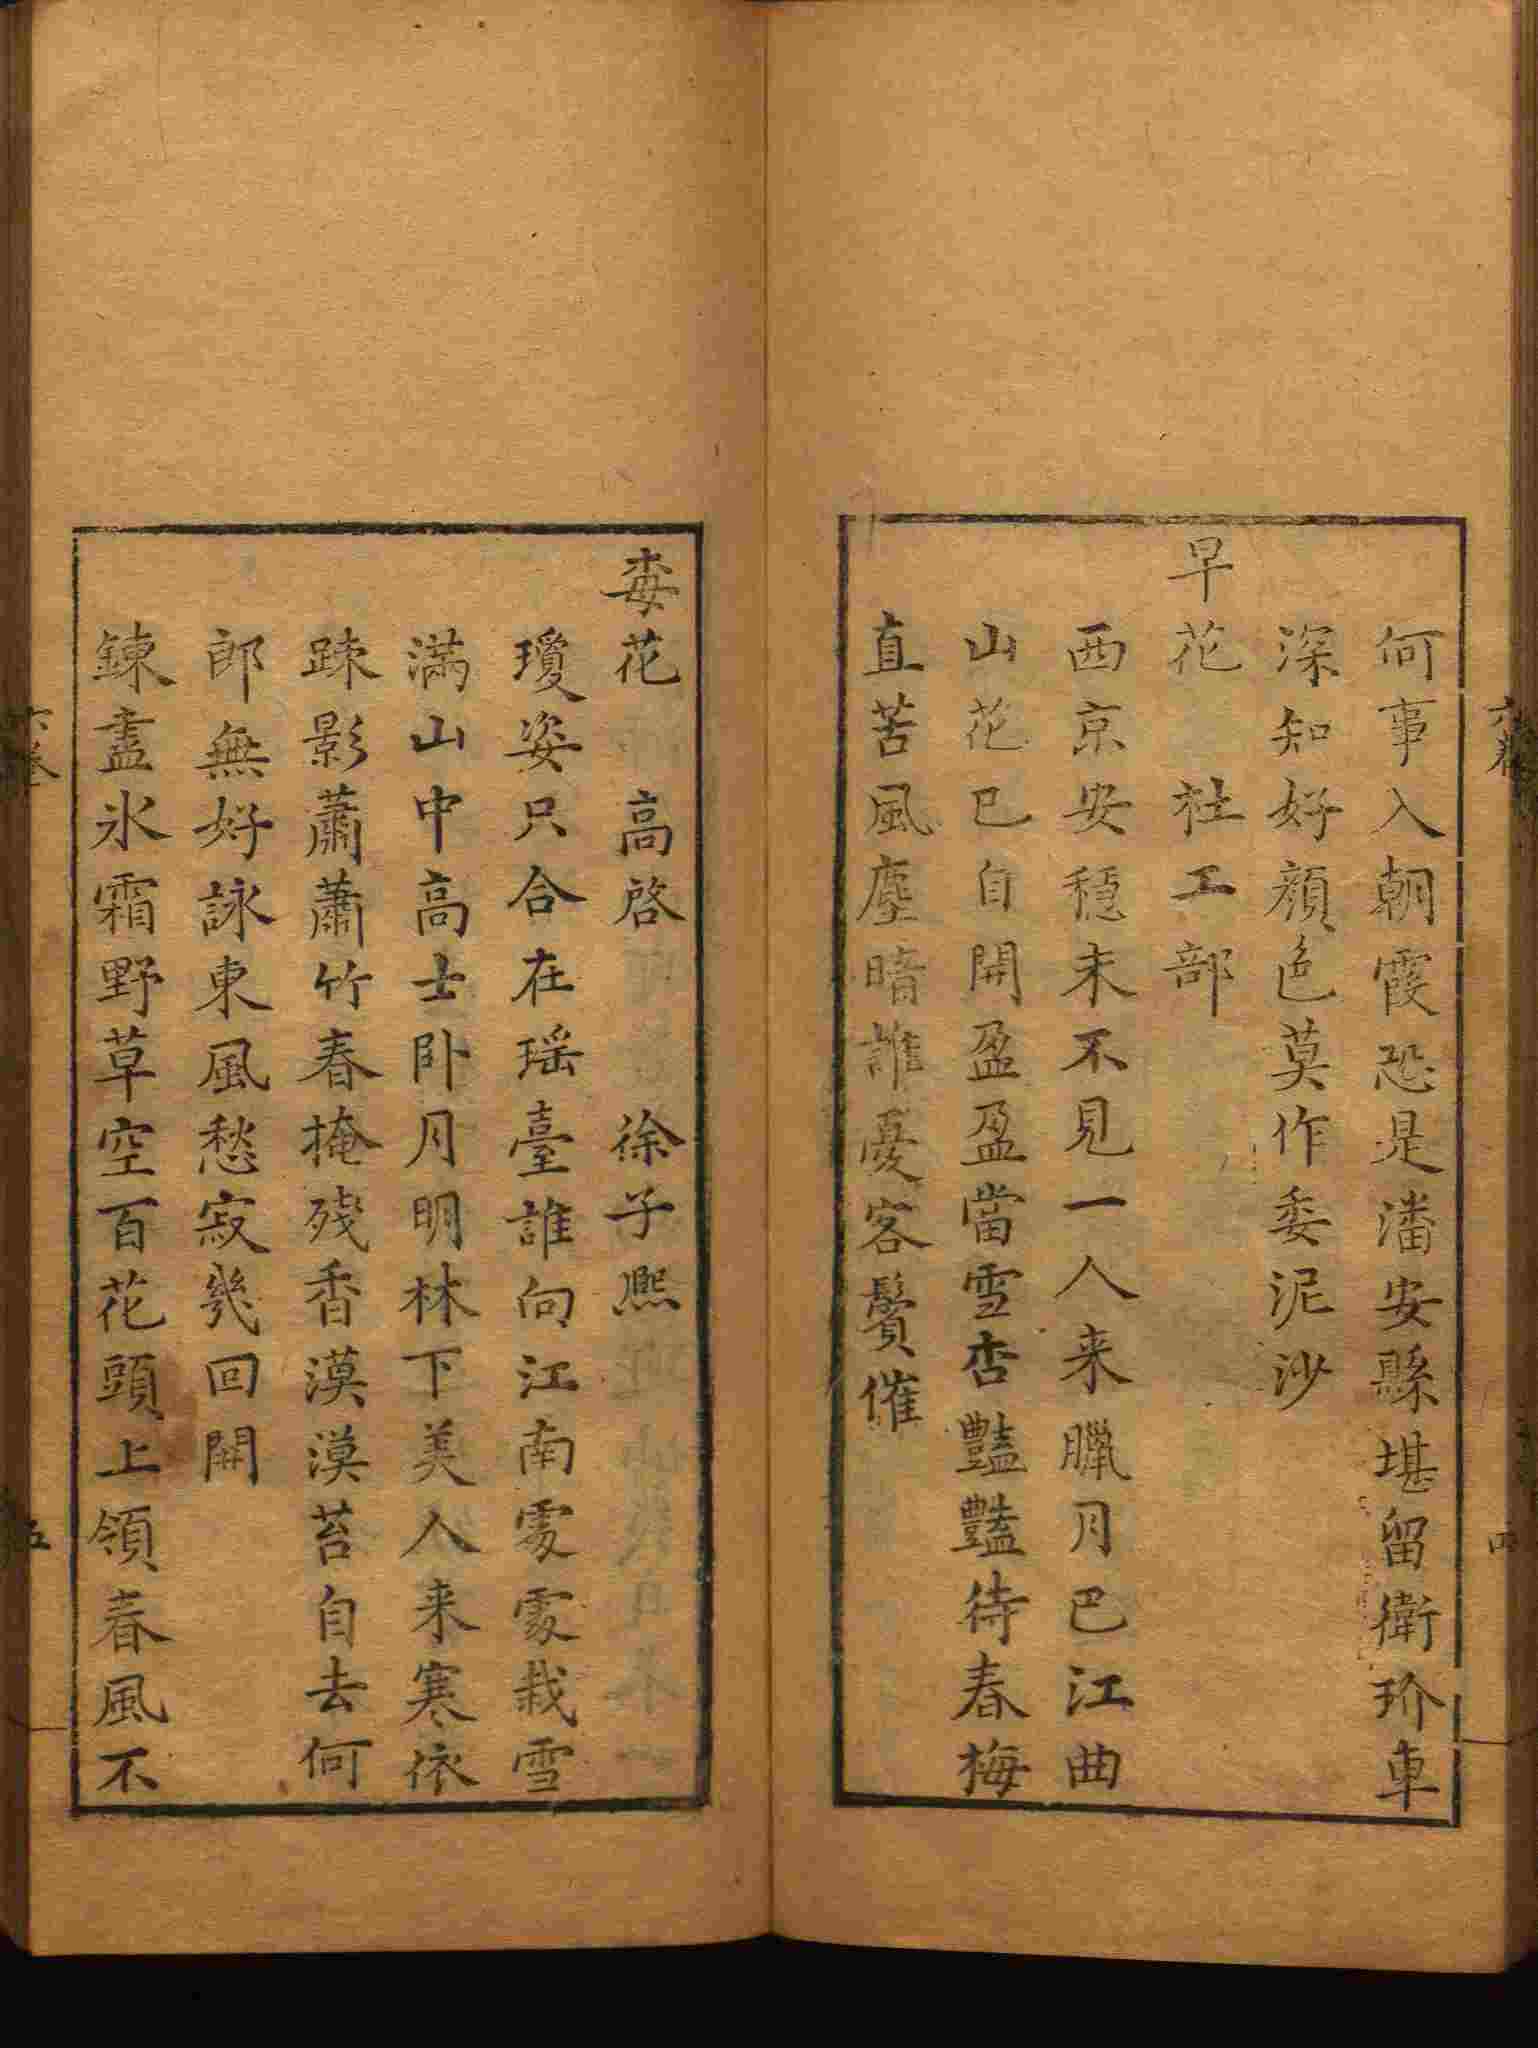 何事入朝霞恐是潘安縣堪留衛玠車
深知好顔色莫作委泥沙
早花 杜工部
西京安穏未不見一人来臘月巴江曲
山花已自開盈盈當雪杏豔豔待春梅
直苦風塵暗誰憂客鬢催
六卷
四
梅花 高啓 徐子熈
瓊姿只合在瑶臺誰向江南處處栽雪
滿山中高士卧月明林下美人来寒依
疎影蕭蕭竹春掩殘香漠漠苔自去何
郎無好詠東風愁寂幾回開
鍊盡氷霜野草空百花頭上領春風不
六卷
五